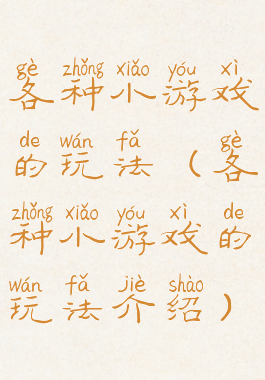 gè zhǒng xiǎo yóu xì
各种小游戏
de wán fǎ gè
的玩法（各
zhǒng xiǎo yóu xì de
种小游戏的
wán fǎ jiè shào
玩法介绍）